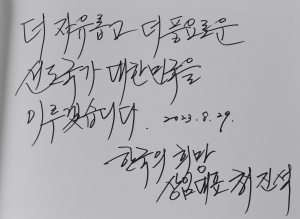 더 자유롭고 더 풍요로운
선도국가 대한민국을
이루겠습니다. 2023.8.29.
한국의희망
상임대표 최진석